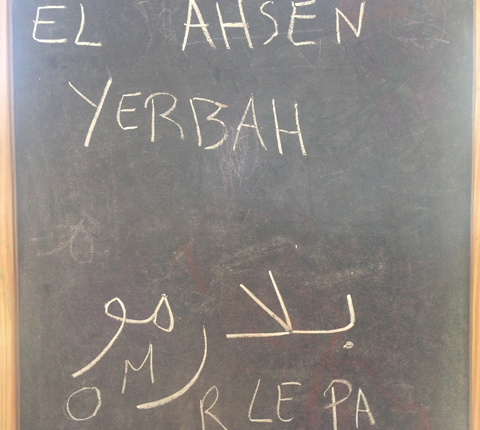 EL AHSEN
YERBAH
بلا رمو
O M R LE PA